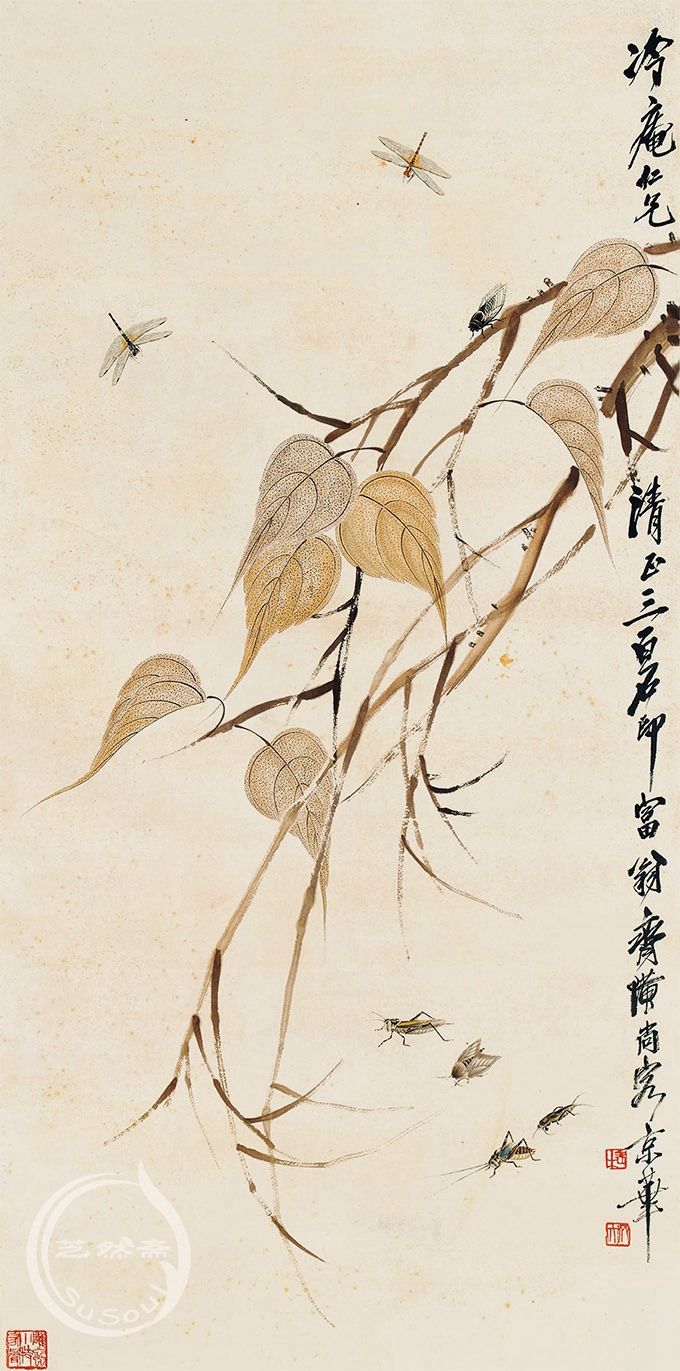 冷庵仁兄
清正三百石印富翁齊璜尚客京華
芝然斋
SuSoul